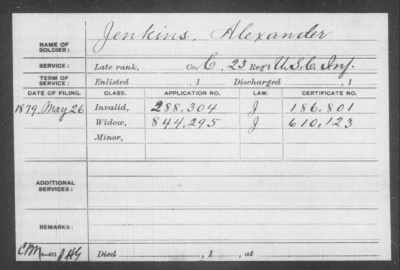 NAME OF SOLDIER: Jenkins, Alexander
SERVICE: Late rank, Co. C, 23 Reg't U.S.C. Inf.
TERM OF SERVICE: Enlisted , 1 Discharged , 1
DATE OF FILING. CLASS. APPLICATION NO. LAW. CERTIFICATE NO.
1879, May 26 Invalid, 288,304 J 186,801
Widow, 844,295 J 610,123
Minor,
ADDITIONAL SERVICES:
REMARKS:
Died , 1 , at